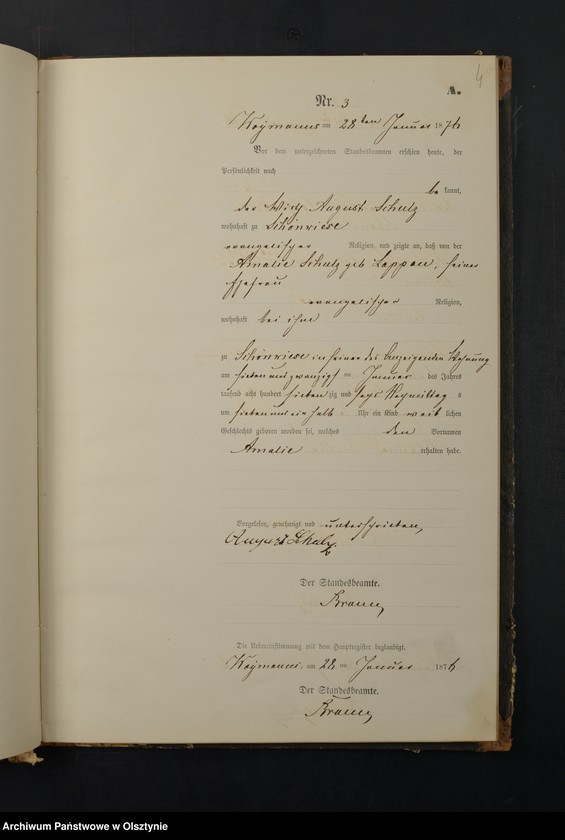 4
A.
Nr. 3
am 28ten Januar 1876
Vor dem unterzeichneten Standesbeamten erschien heute, der
Persönlichkeit nach
bekannt,
der Wirth August Schulz
wohnhaft zu Schönwiese
evangelischer Religion, und zeigte an, daß von der
Amalie Schulz geb Lappan, seiner
Ehefrau
evangelischer Religion,
wohnhaft bei ihm
zu Schönwiese in seiner des Anzeigenden Wohnung
am sieben und zwanzigsten Januar des Jahres
tausend acht hundert siebenzig und sechs Nachmittag s
um sieben und ein halb Uhr ein Kind weiblichen
Geschlechts geboren worden sei, welches den Vornamen
Amalie erhalten habe.
Vorgelesen, genehmigt und unterschrieben,
August Schulz
Der Standesbeamte.
Die Uebereinstimmung mit dem Hauptregister beglaubigt.
am 28ten Januar 1876
Der Standesbeamte.
Archiwum Państwowe w Olsztynie